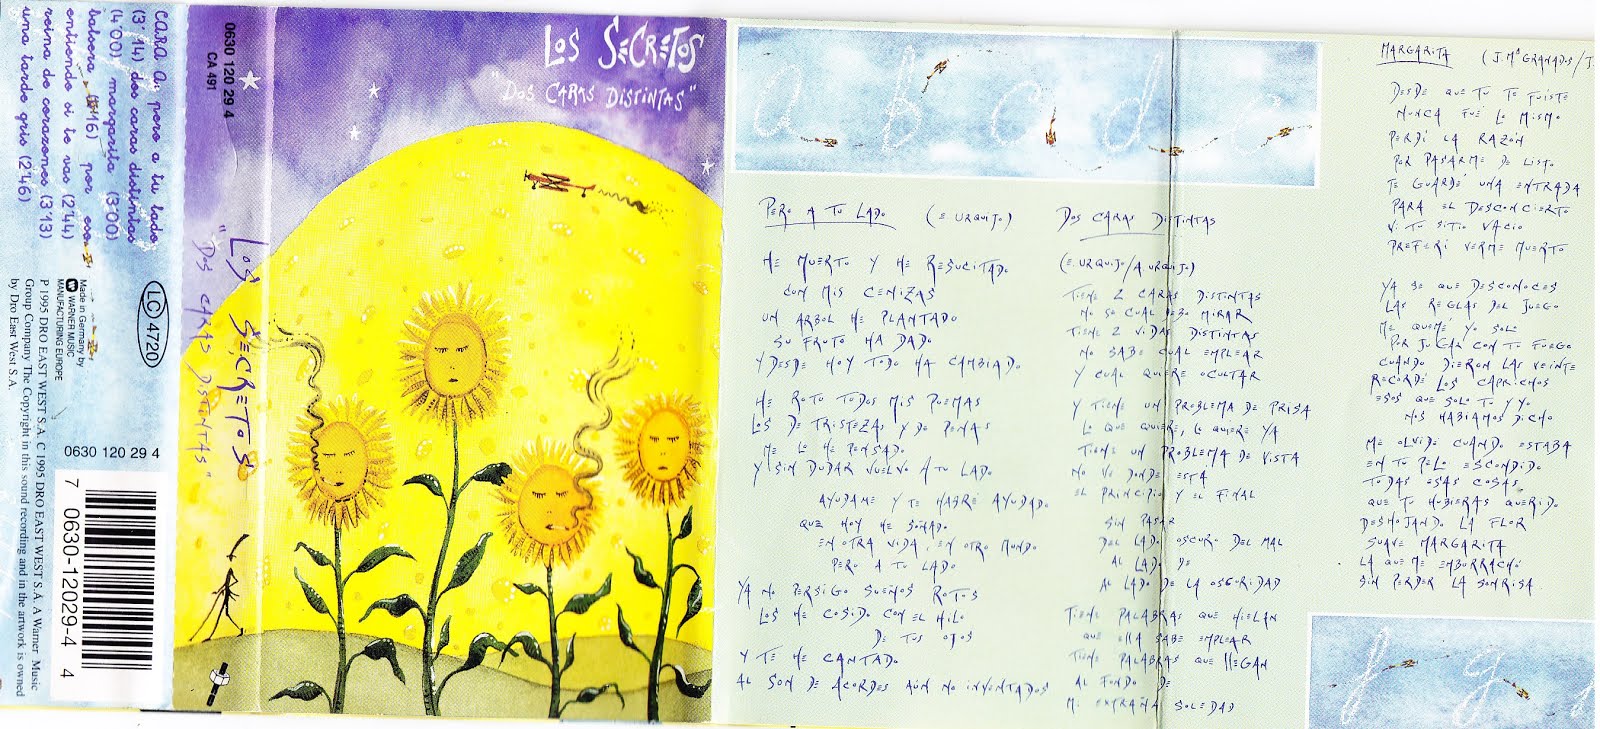 CARA A: pero a tu lado
(3'14) dos caras distintas
(4'00) margarita (3'00)
balsera (3'16) por eso
entiendo si te vas (2'44)
reina de corazones (3'13)
una tarde gris (2'46)
LC 4720
Made in Germany by
WARNER MUSIC
MANUFACTURING EUROPE
P 1995 DRO EAST WEST S.A. C 1995 DRO EAST WEST S.A. A Warner Music
Group Company The Copyright in this sound recording and in the artwork is owned
by Dro East West S.A.
0630 120 29 4
7 0630-12029-4 4
0630 120 29 4
CA 491
"LOS SECRETOS
DOS CARAS DISTINTAS"
LOS SECRETOS
"DOS CARAS DISTINTAS"
a b c d e
PERO A TU LADO (E. URQUIJO)
HE MUERTO Y HE RESUCITADO
CON MIS CENIZAS
UN ARBOL HE PLANTADO
SU FRUTO HA DADO
Y DESDE HOY TODO HA CAMBIADO
HE ROTO TODOS MIS POEMAS
LOS DE TRISTEZAS Y DE PENAS
ME LO HE PENSADO
Y SIN DUDAR VUELVO A TU LADO
AYUDAME Y TE HABRE AYUDADO
QUE HOY HE SOÑADO
EN OTRA VIDA, EN OTRO MUNDO
PERO A TU LADO
YA NO PERSIGO SUEÑOS ROTOS
LOS HE COSIDO CON EL HILO
DE TUS OJOS
Y TE HE CANTADO
AL SON DE ACORDES AÚN NO INVENTADOS
DOS CARAS DISTINTAS
(E. URQUIJO/A. URQUIJO)
TIENE 2 CARAS DISTINTAS
NO SE CUAL DEBO MIRAR
TIENE 2 VIDAS DISTINTAS
NO SABE CUAL EMPLEAR
Y CUAL QUIERE OCULTAR
Y TIENE UN PROBLEMA DE PRISA
LO QUE QUIERE, LO QUIERE YA
TIENE UN PROBLEMA DE VISTA
NO VE DONDE ESTA
EL PRINCIPIO Y EL FINAL
SIN PASAR
DEL LADO OSCURO DEL MAL
AL LADO DE
AL LADO DE LA OSCURIDAD
TIENE PALABRAS QUE HIELAN
QUE ELLA SABE EMPLEAR
TIENE PALABRAS QUE LLEGAN
AL FONDO DE
MI EXTRAÑA SOLEDAD
MARGARITA (J. Mª GRANADOS/J.
DESDE QUE TU TE FUISTE
NUNCA FUE LO MISMO
PERDI LA RAZÓN
POR PASARME DE LISTO
TE GUARDÉ UNA ENTRADA
PARA EL DESCONCIERTO
VI TU SITIO VACIO
PREFERI VERME MUERTO
YA SE QUE DESCONOCES
LAS REGLAS DEL JUEGO
ME QUEMÉ YO SOLO
POR JUGAR CON TU FUEGO
CUANDO DIERON LAS VEINTE
RECORDÉ LOS CAPRICHOS
ESOS QUE SOLO TU Y YO
NOS HABIAMOS DICHO
ME OLVIDE CUANDO ESTABA
EN TU PELO ESCONDIDO
TODAS ESAS COSAS
QUE TU HUBIERAS QUERIDO
DESHOJANDO LA FLOR
SUAVE MARGARITA
LA QUE ME EMBORRACHÓ
SIN PERDER LA SONRISA
f g